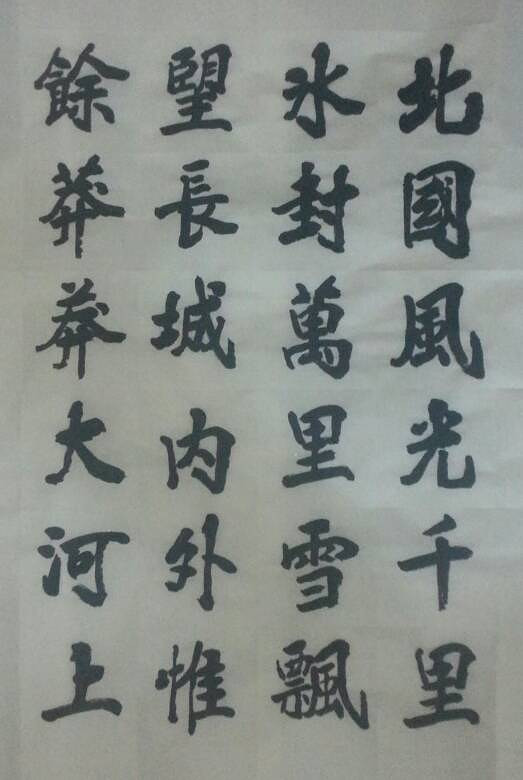 北國風光千里
氷封萬里雪飄
望長城内外惟
餘莽莽大河上